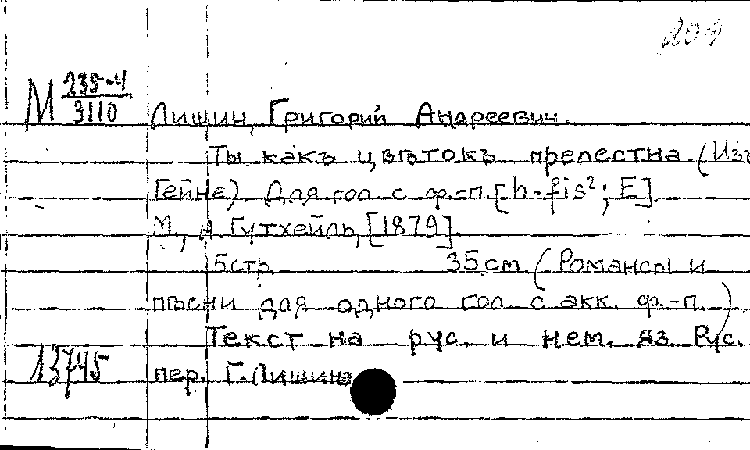 209
М 235-4
3110
Лишин, Григорий Андреевич.
Ты какъ цвѣтокъ прелестна (Изъ
Гейне) Для гол. с ф.-п. [h-fis²; E]
М., А. Гутхейль, [1879].
5 стр. 35 см. (Романсы и
пѣсни для одного гол. с акк. ф.-п.)
Текст на рус. и нем. яз. Рус.
13745
пер. Г. Лишина